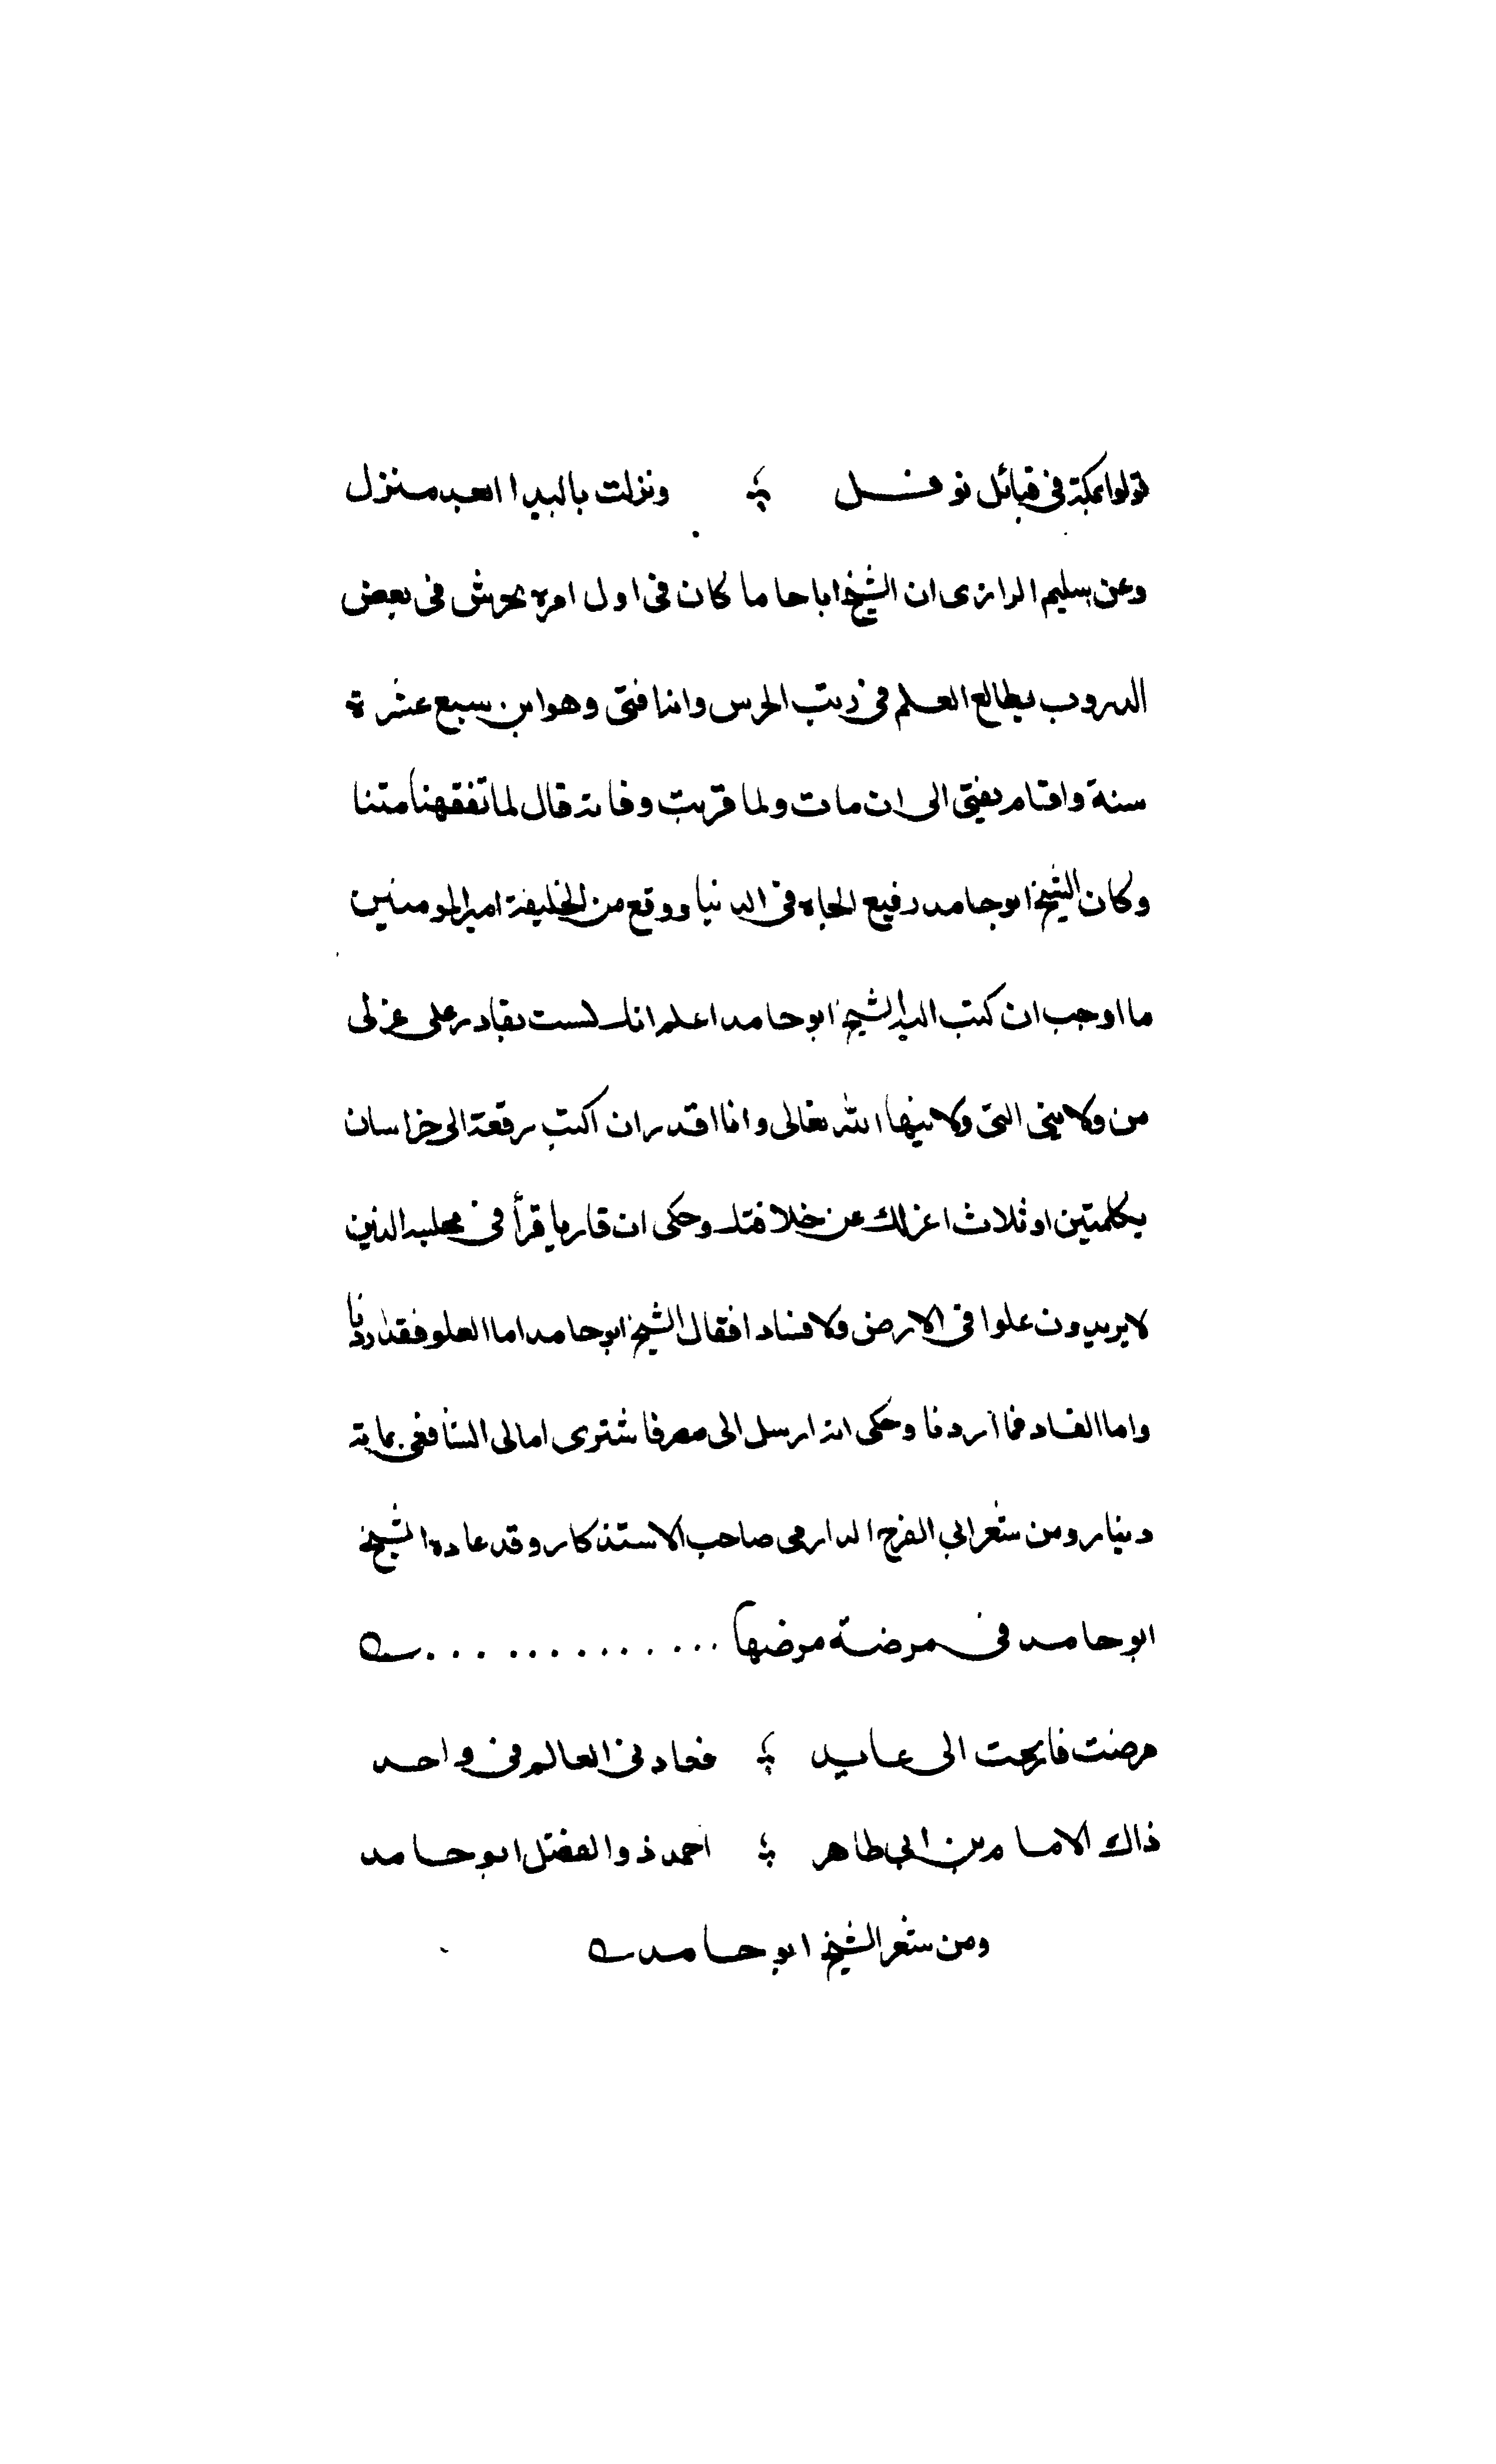 نزلوا بمكة في قبائل نوفل ونزلت بالبيدا ابعد منزل
وعن سليم الرازى ان الشيخ ابا حاما كان فى اول امره يحرش فى بعض
الدروب يطالع العلم في زيت الحرس وانه افتى وهو ابن سبع عشرة
سنة واقام يفتى الى ان مات ولما قربت وفاته قال لما تفقهنا متنا
وكان الشيخ ابو حامد رفيع الجاه في الدنيا ووقع من الخليفة امير المومنين
ما اوجب ان كتب اليه الشيخ ابو حامد اعلم انك لست بقادر على عزلى
من ولايتى التى ولانيها الله تعالى وانا اقدر ان اكتب رقعة الى خراسان
بكلمتين او ثلاث اعزلك عن خلافتك وحكى ان قاريا قرأ في مجلسه الذين
لا يريدون علوا في الارض ولا فسادا فقال الشيخ ابو حامد اما العلو فقد اردنا
واما الفساد فما اردنا وحكى انه ارسل الى مصر فاشترى امالى الشافعي بماية
دينار ومن شعر ابي الفرج الدارمى صاحب الاستذكار وقد عاده الشيخ
ابو حامد في مرضة مرضها ............
مرضت فارتحت الى عايد فعادنى العالم في واحد
ذاك الامام بن ابي طاهر احمد ذو الفضل ابو حامد
ومن شعر الشيخ ابو حامد